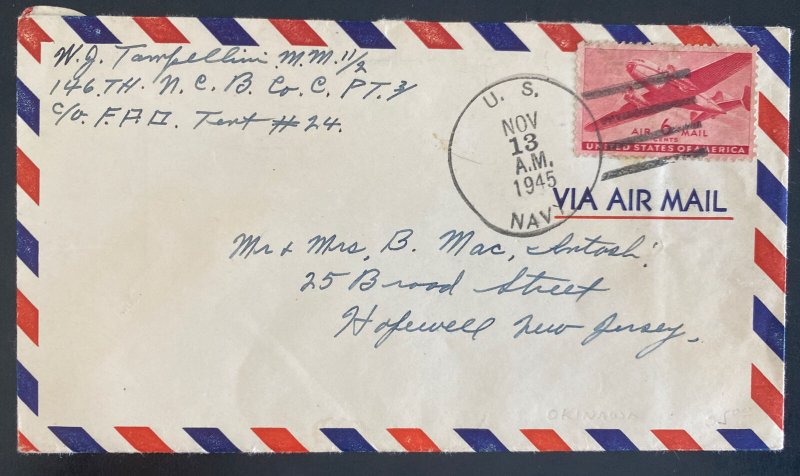 W. J. Tampellini M.M. 1/2
146TH. N. C. B. Co. C. PT. 3
c/o. F.P.O. Tent #24.
U. S.
NOV
13
A.M.
1945
NAVY
AIR 6 MAIL
CENTS
UNITED STATES OF AMERICA
VIA AIR MAIL
Mr & Mrs, B. Mac, Intosh.
25 Broad Street
Hopewell New Jersey.
OKINAWA